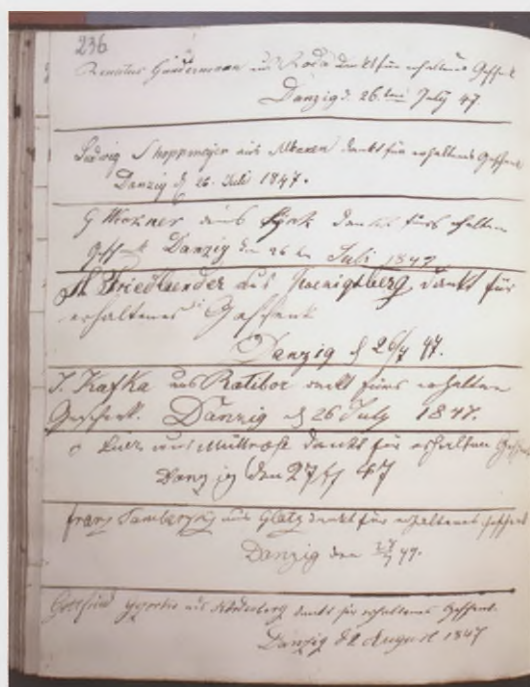 236
Renatus Gündermann aus Roda dankt für erhaltenes Geschenk
Danzig d. 26ten July 47.
Ludwig aus dankt für erhaltenes Geschenk
Danzig d 26. Juli 1847.
G aus dankt fürs erhalten
Gesch Danzig den 26 ten Juli 1847
M Friedlaender aus Koenigsberg dankt für
erhaltenes Geschenk
Danzig d 26/7 47.
J. Kafka aus Ratibor dankt fürs erhalten
Geschenk. Danzig d 26 July 1847.
aus Müllrose dankt für erhalten Geschenk
Danzig den 27/7 47
Franz aus Glatz dankt für erhaltenes Geschenk
Danzig den 27/7 47.
Gottfried aus dankt für erhaltenes Geschenk.
Danzig d 2 August 1847